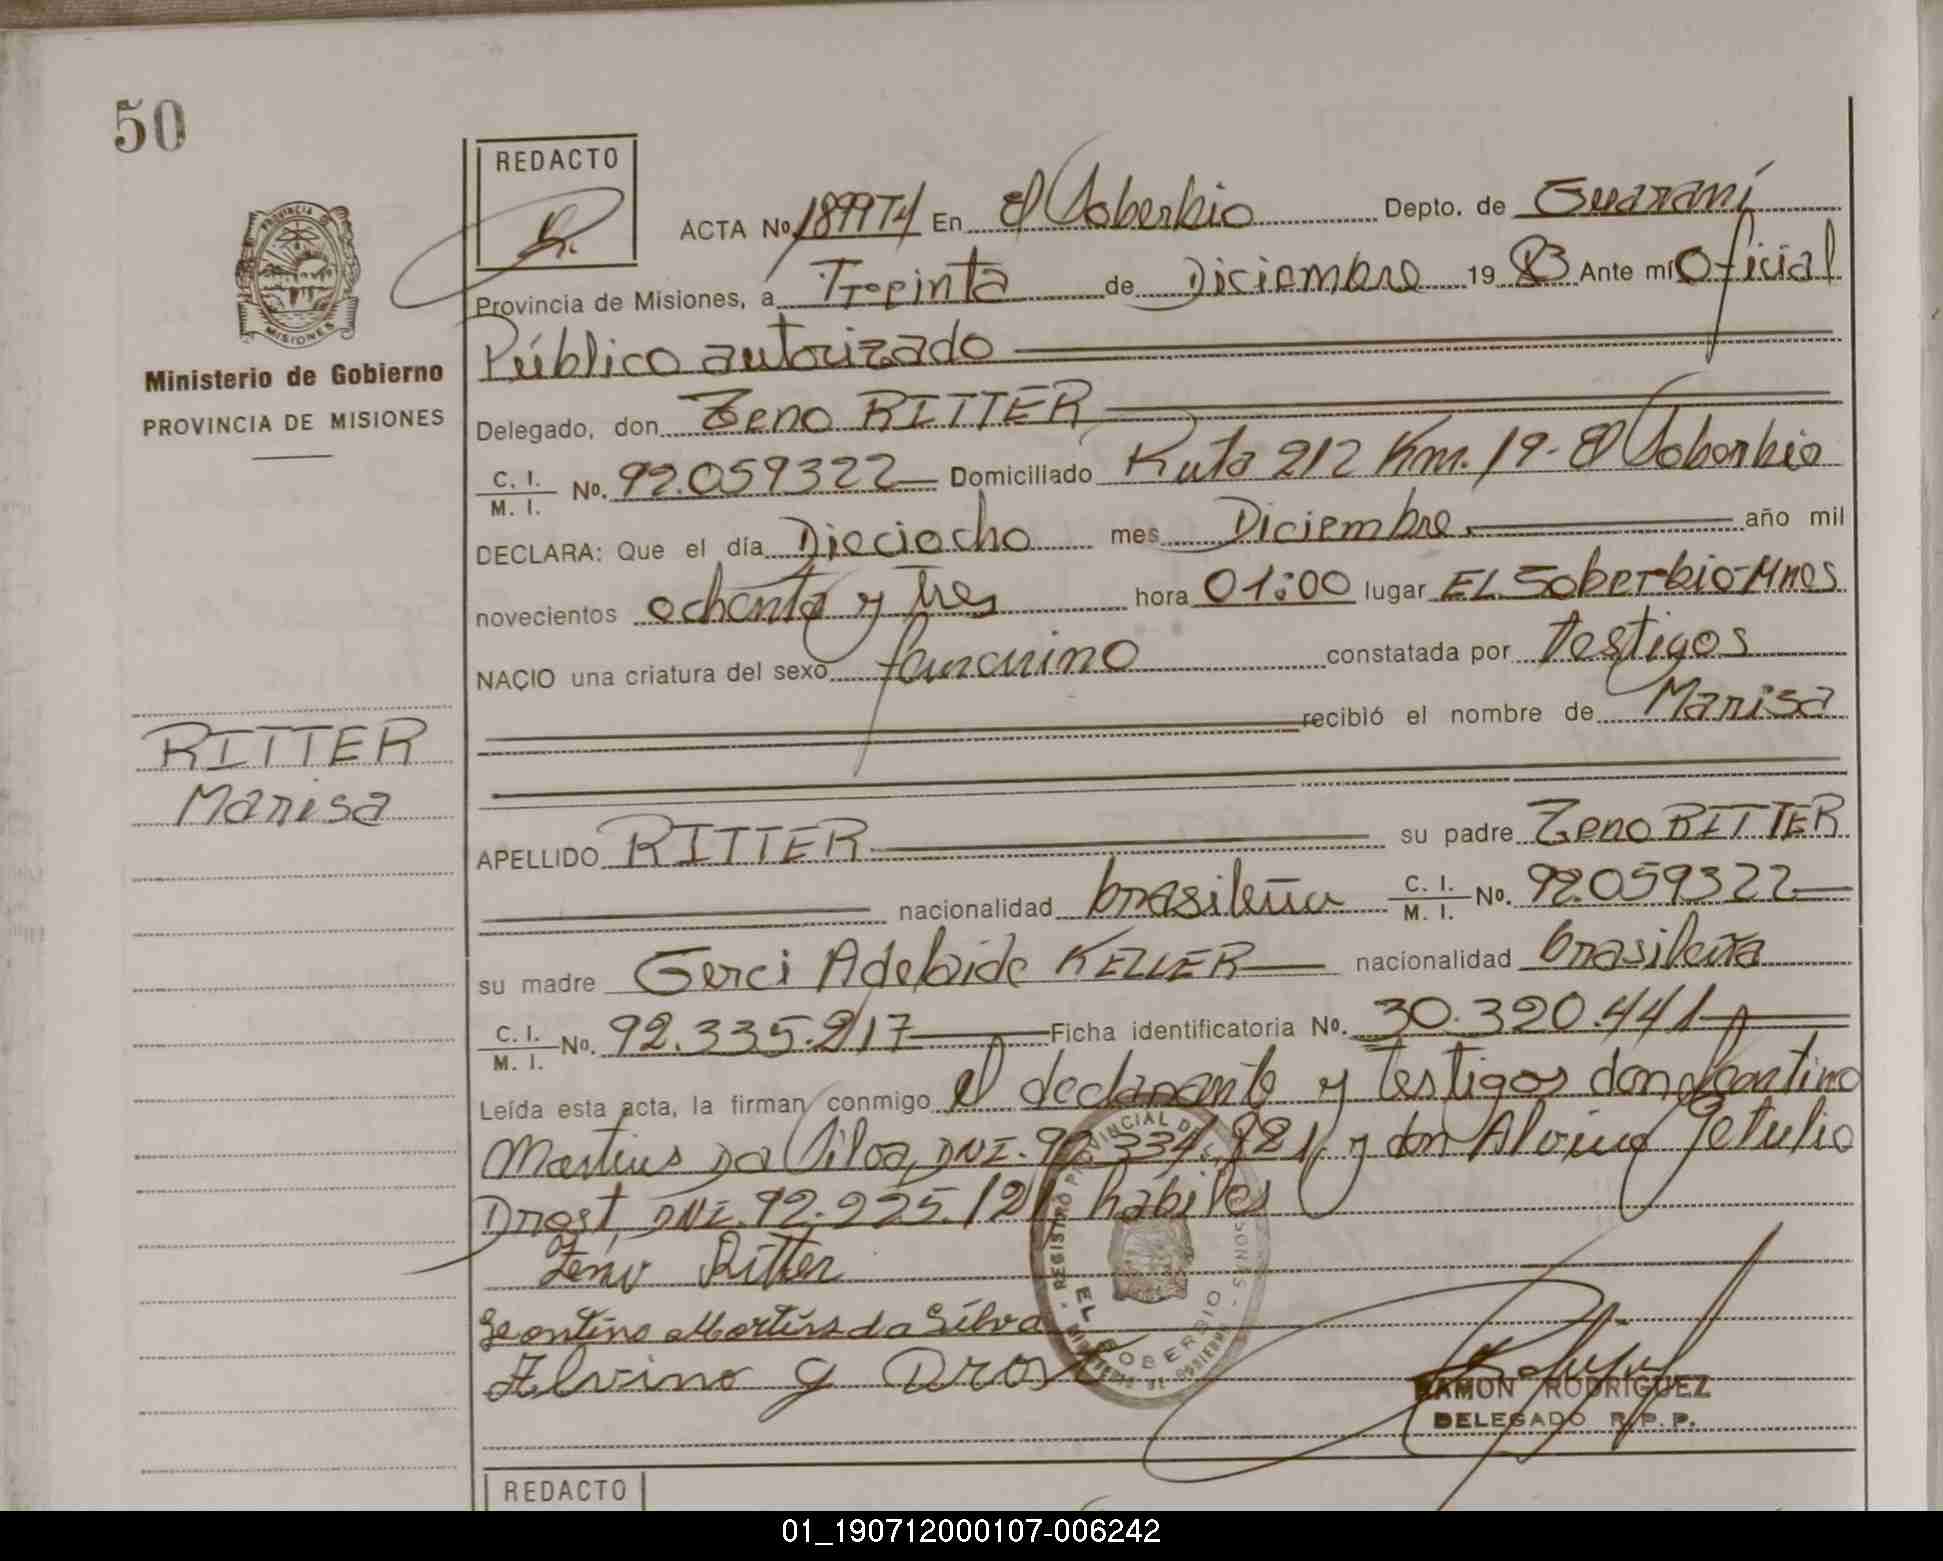 50
REDACTO
ACTA No. 189974 En El Soberbio Depto. de Guaraní
Provincia de Misiones, á Treinta de Diciembre 19 83 Ante mí Oficial
Público autorizado
Ministerio de Gobierno
PROVINCIA DE MISIONES
Delegado, don Zeno RITTER
C. I. / M. I. No. 92.059322 Domiciliado Ruta 212 Km. 19 - El Soberbio
DECLARA: Que el día Dieciocho mes Diciembre año mil
novecientos ochenta y tres hora 01:00 lugar EL Soberbio-Mnes
NACIO una criatura del sexo femenino constatada por Testigos
recibió el nombre de Marisa
RITTER
Marisa
APELLIDO RITTER su padre Zeno RITTER
nacionalidad brasileña C. I. / M. I. No. 92.059322
su madre Gerci Adelaide KELLER nacionalidad brasileña
C. I. / M. I. No. 92.335.217 Ficha identificatoria No. 30.320.441
Leída esta acta, la firman conmigo el declarante y testigos don Leontino
Martins Da Silva, DNI. 92.334.821 y don Alvino Getulio
Drost, DNI. 92.225.121 hábiles
Zeno Ritter
Leontino Martins da Silva
Alvino G Drost
REGISTRO PROVINCIAL DE L
EL SOBERBIO
RAMON RODRIGUEZ
DELEGADO R.P.P.
REDACTO
01_190712000107-006242